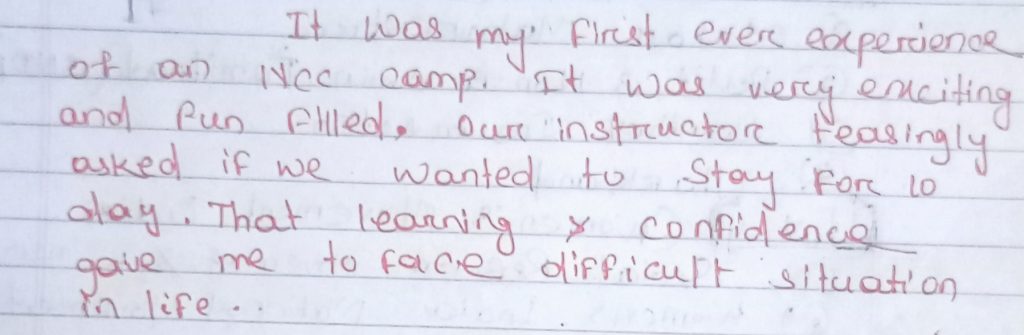 It was my first ever experience
of an NCC camp. It was very exciting
and fun filled. Our instructor teasingly
asked if we wanted to stay for 10
day. That learning & confidence
gave me to face difficult situation
in life.